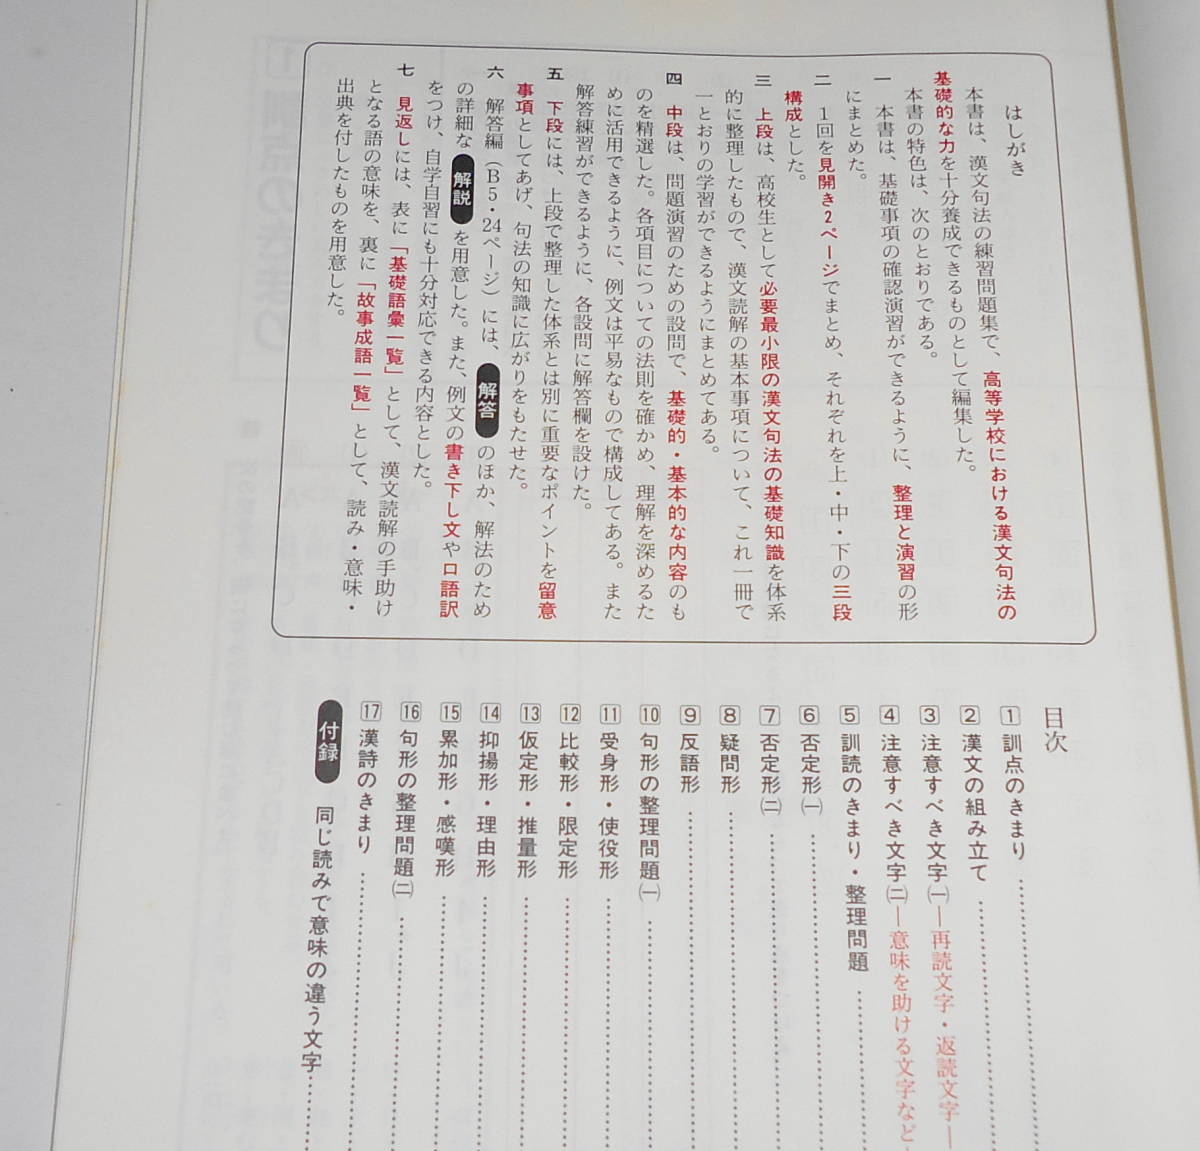 はしがき
本書は、漢文句法の練習問題集で、高等学校における漢文句法の
基礎的な力を十分養成できるものとして編集した。
本書の特色は、次のとおりである。
一　本書は、基礎事項の確認演習ができるように、整理と演習の形
にまとめた。
二　1回を見開き2ページでまとめ、それぞれを上・中・下の三段
構成とした。
三　上段は、高校生として必要最小限の漢文句法の基礎知識を体系
的に整理したもので、漢文読解の基本事項について、これ一冊で
一とおりの学習ができるようにまとめてある。
四　中段は、問題演習のための設問で、基礎的・基本的な内容のも
のを精選した。各項目についての法則を確かめ、理解を深めるた
めに活用できるように、例文は平易なもので構成してある。また
解答練習ができるように、各設問に解答欄を設けた。
五　下段には、上段で整理した体系とは別に重要なポイントを留意
事項としてあげ、句法の知識に広がりをもたせた。
六　解答編（B5・24ページ）には、解答のほか、解法のため
の詳細な解説を用意した。また、例文の書き下し文や口語訳
をつけ、自学自習にも十分対応できる内容とした。
七　見返しには、表に「基礎語彙一覧」として、漢文読解の手助け
となる語の意味を、裏に「故事成語一覧」として、読み・意味・
出典を付したものを用意した。
目次
1 訓点のきまり
2 漢文の組み立て
3 注意すべき文字㈠―再読文字・返読文字―
4 注意すべき文字㈡―意味を助ける文字など
5 訓読のきまり・整理問題
6 否定形㈠
7 否定形㈡
8 疑問形
9 反語形
10 句形の整理問題㈠
11 受身形・使役形
12 比較形・限定形
13 仮定形・推量形
14 抑揚形・理由形
15 累加形・感嘆形
16 句形の整理問題㈡
17 漢詩のきまり
付録　同じ読みで意味の違う文字